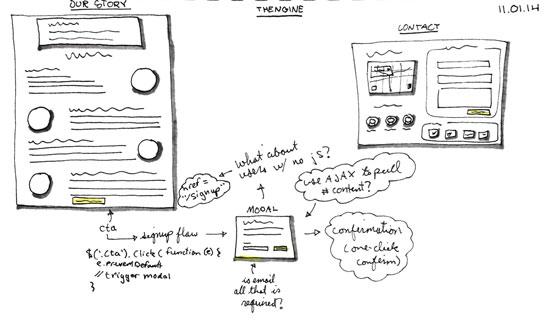 OUR STORY
THENGINE
11.01.14
CONTACT
what about
users w/ no js?
href =
"/signup"
use AJAX to pull
# content?
MODAL
cta
signup flow
confirmation
(one-click
confirm)
$('.cta').click( function(e) {
e.preventDefault
// trigger modal
}
is email
all that is
required?